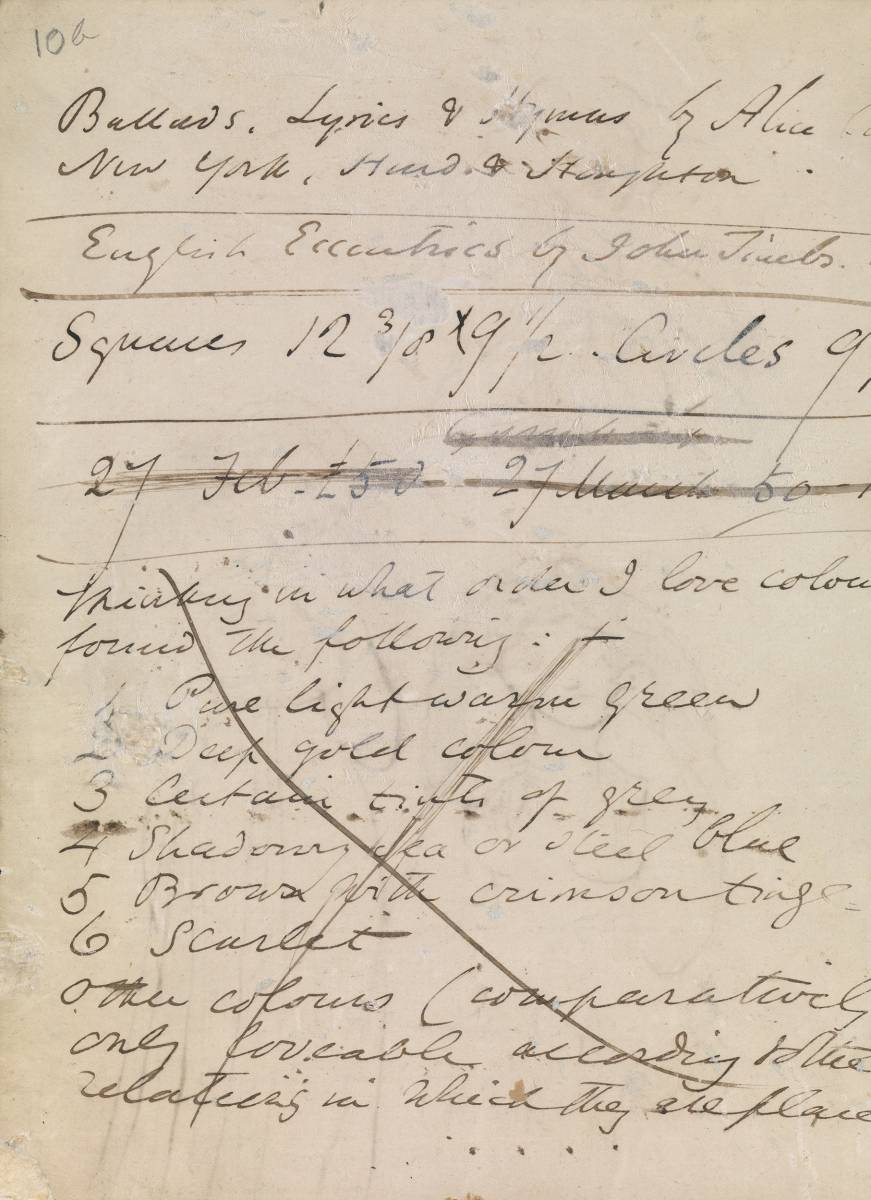 10b
Ballads, Lyrics & Hymns by Alice
New York, Hurd & Houghton
English Eccentrics by John Timbs.
Squares 12 3/8 x 9 1/2. Circles 9
27 Feb. £50 27 March 50
Thinking in what order I love colou
found the following: +
1 Pure light warm green
2 Deep gold colour
3 Certain tints of grey
4 Shadowy sea or steel blue
5 Brown with crimson tinge
6 Scarlet
Other colours (comparatively
only loveable according to the
relations in which they are place